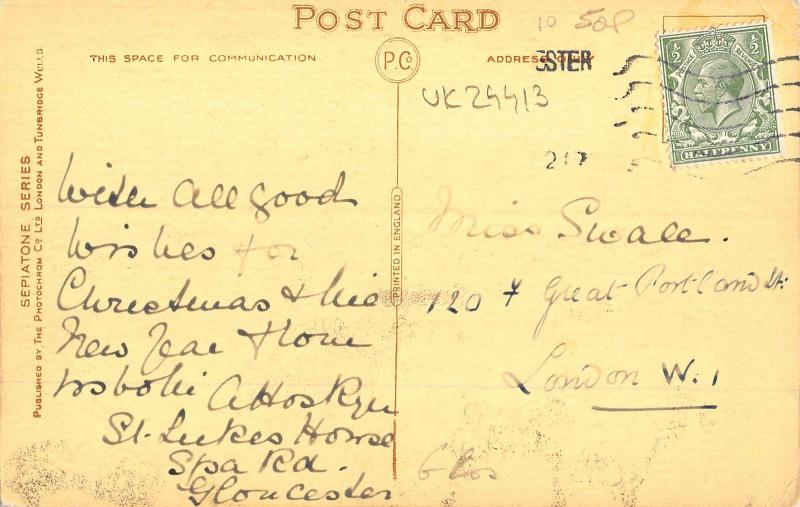 POST CARD
10 50P
THIS SPACE FOR COMMUNICATION
P.Co
ADDRESS ONLY
ESTER
UK24413
½
½
HALFPENNY
SEPIATONE SERIES
PUBLISHED BY THE PHOTOCHROM CO LTD LONDON AND TUNBRIDGE WELLS
PRINTED IN ENGLAND
With all good
Wishes for
Christmas & the
New Year & from
A Hoskyn
St. Lukes House
Spa Rd.
Gloucester
Miss Swale.
120 Great Portland St.
London W.1
Glos